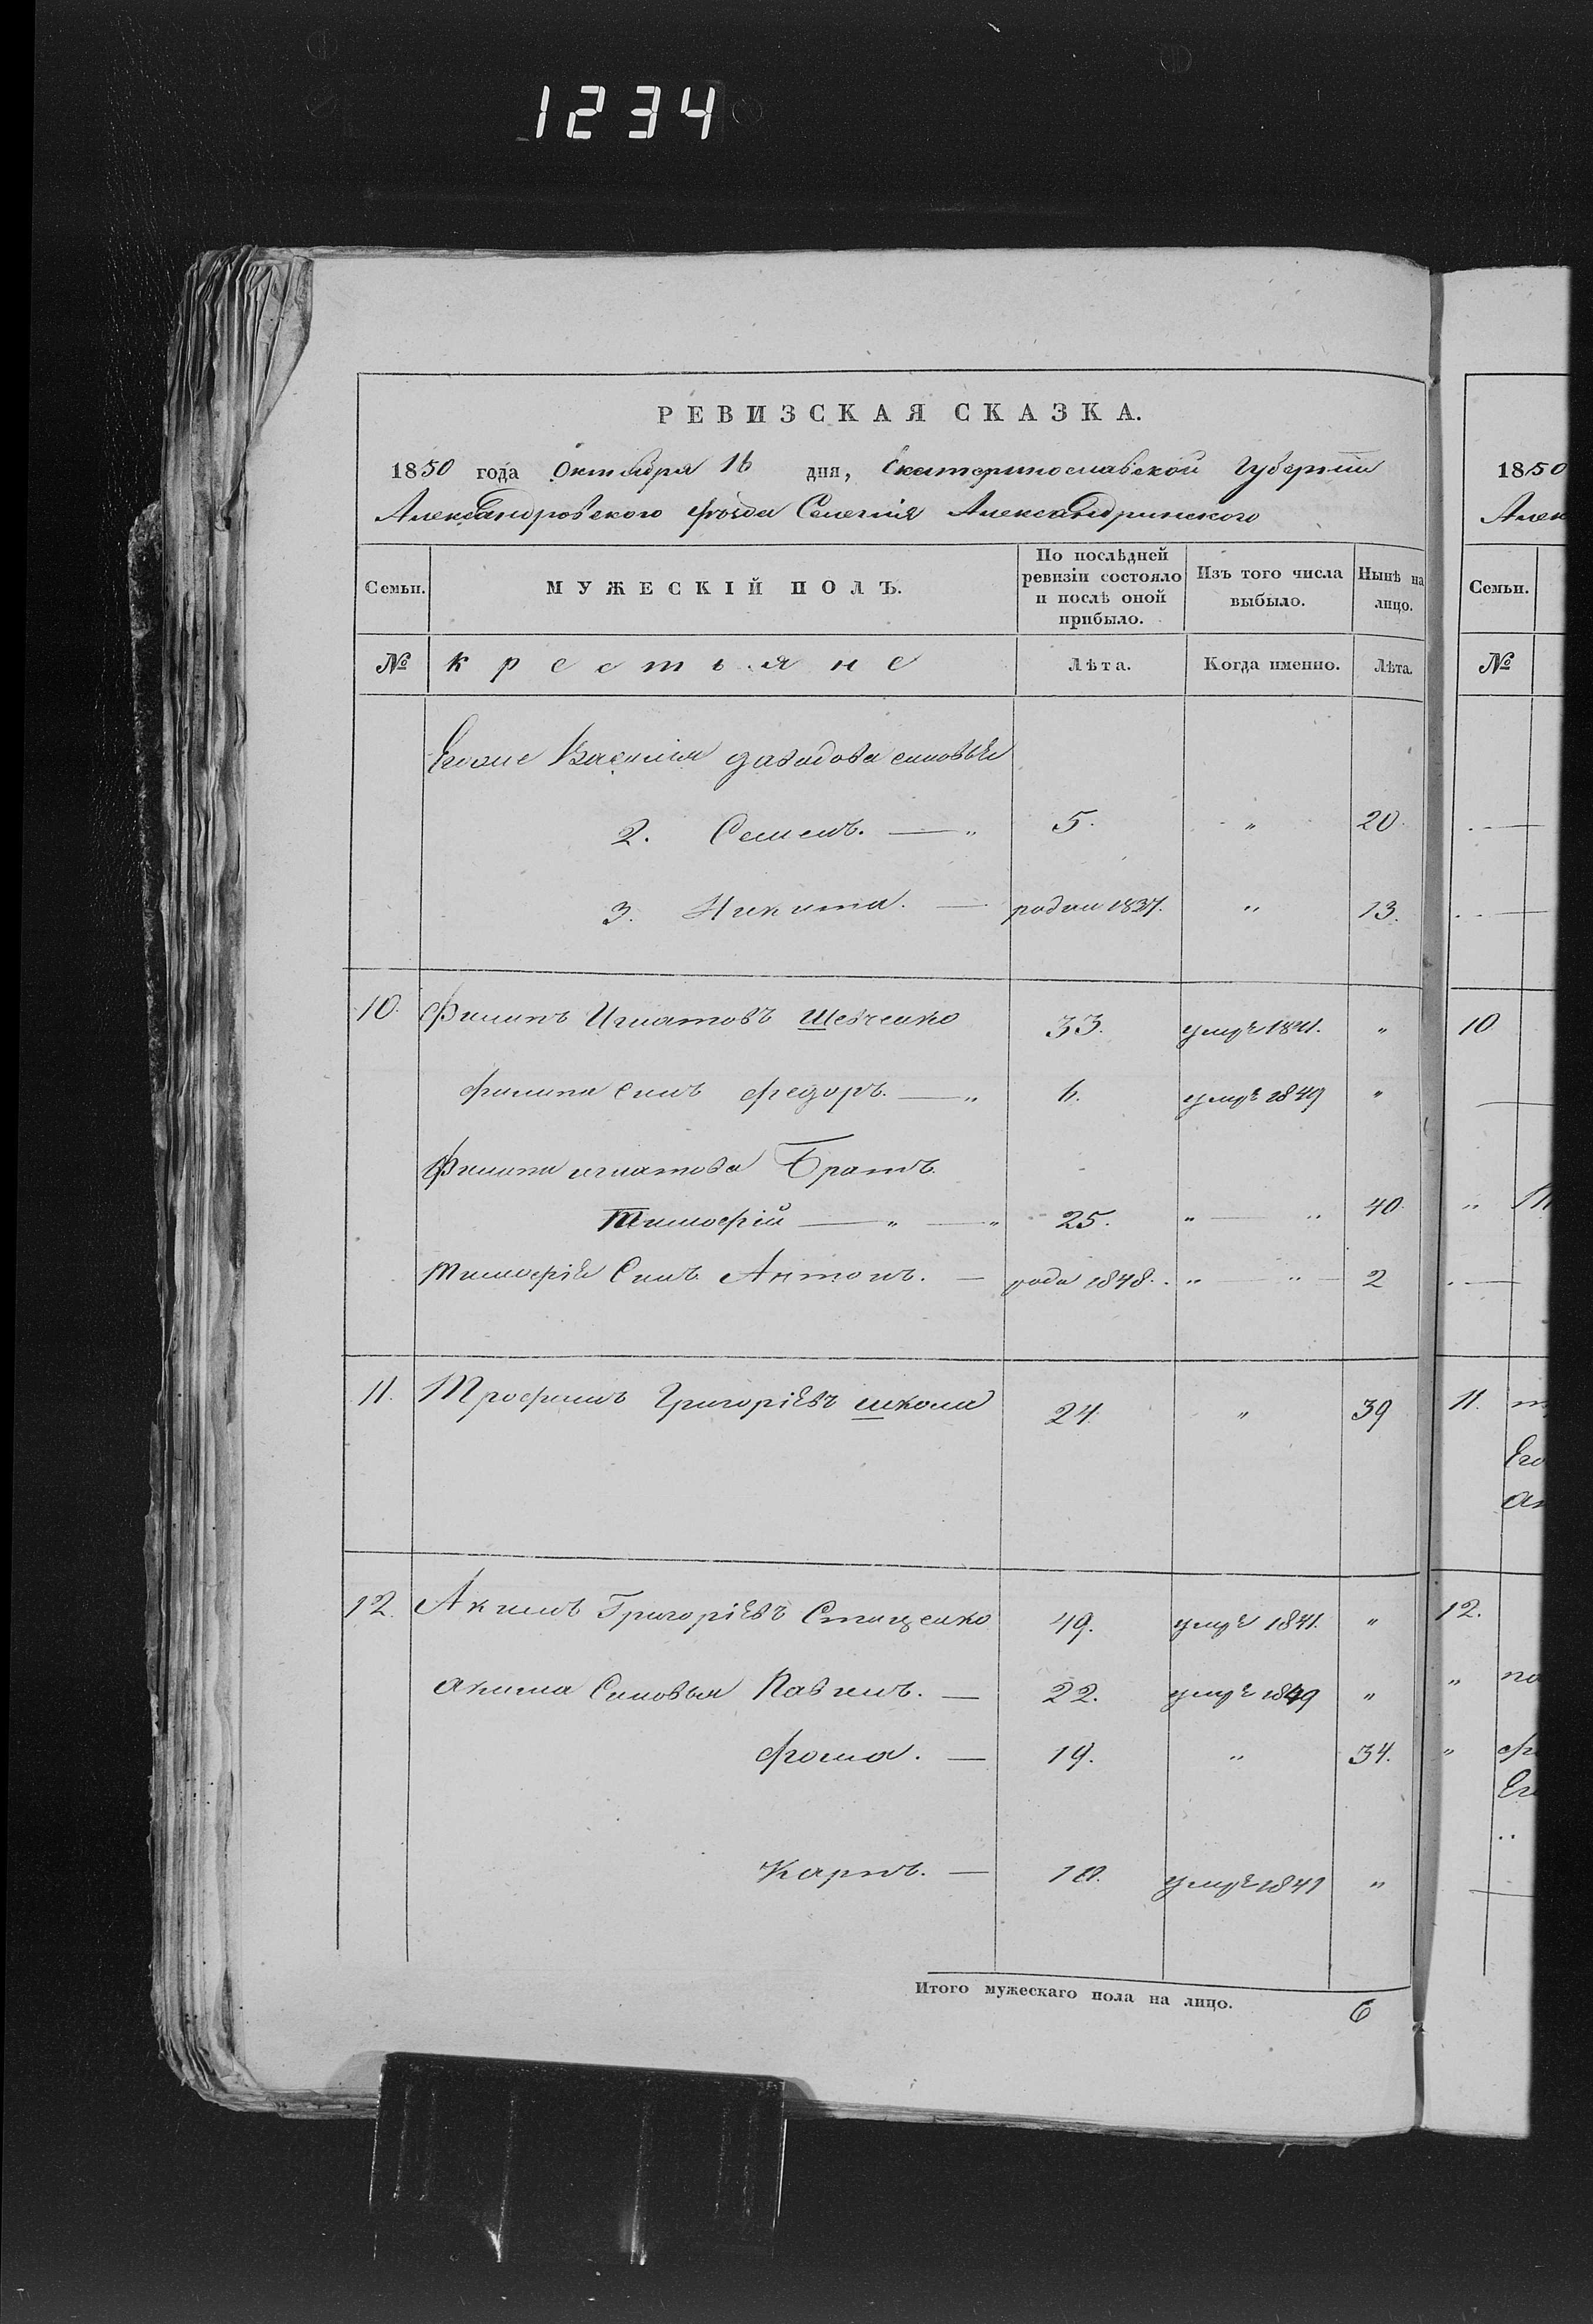 1234
РЕВИЗСКАЯ СКАЗКА.
1850 года Октября 16 дня, Екатеринославской Губернии
Александровского уезда Селения Александринского
Семьи. МУЖЕСКІЙ ПОЛЪ. По послѣдней ревизіи состояло и послѣ оной прибыло. Изъ того числа выбыло. Нынѣ на лицо.
№ крестьяне Лѣта. Когда именно. Лѣта.
Василия давидова сыновья
2. Семенъ. — „ 5. „ 20.
3. Никита. — родил 1837. „ 13.
10. Филипъ Игнатовъ Шевченко 33. умре 1841. „
филипа Сынъ федоръ. — „ 6. умре 1849 „
Филипа игнатова Братъ
Тимофій — „ — „ 25. „ — „ 40.
Тимофія Сынъ Антонъ. — роди 1848. „ — „ — 2
11. Трофимъ Григоріевъ школа 24. „ 39
12. Акимъ Григоріевъ Стищенко 49. умре 1841. „
акима Сыновья Павелъ. — 22. умре 1849 „
фома. — 19. „ 34.
Карпъ. — умре 1841 „
Итого мужескаго пола на лицо. 6
1850
Алек
Семьи.
№
10
11.
Его
12.
по